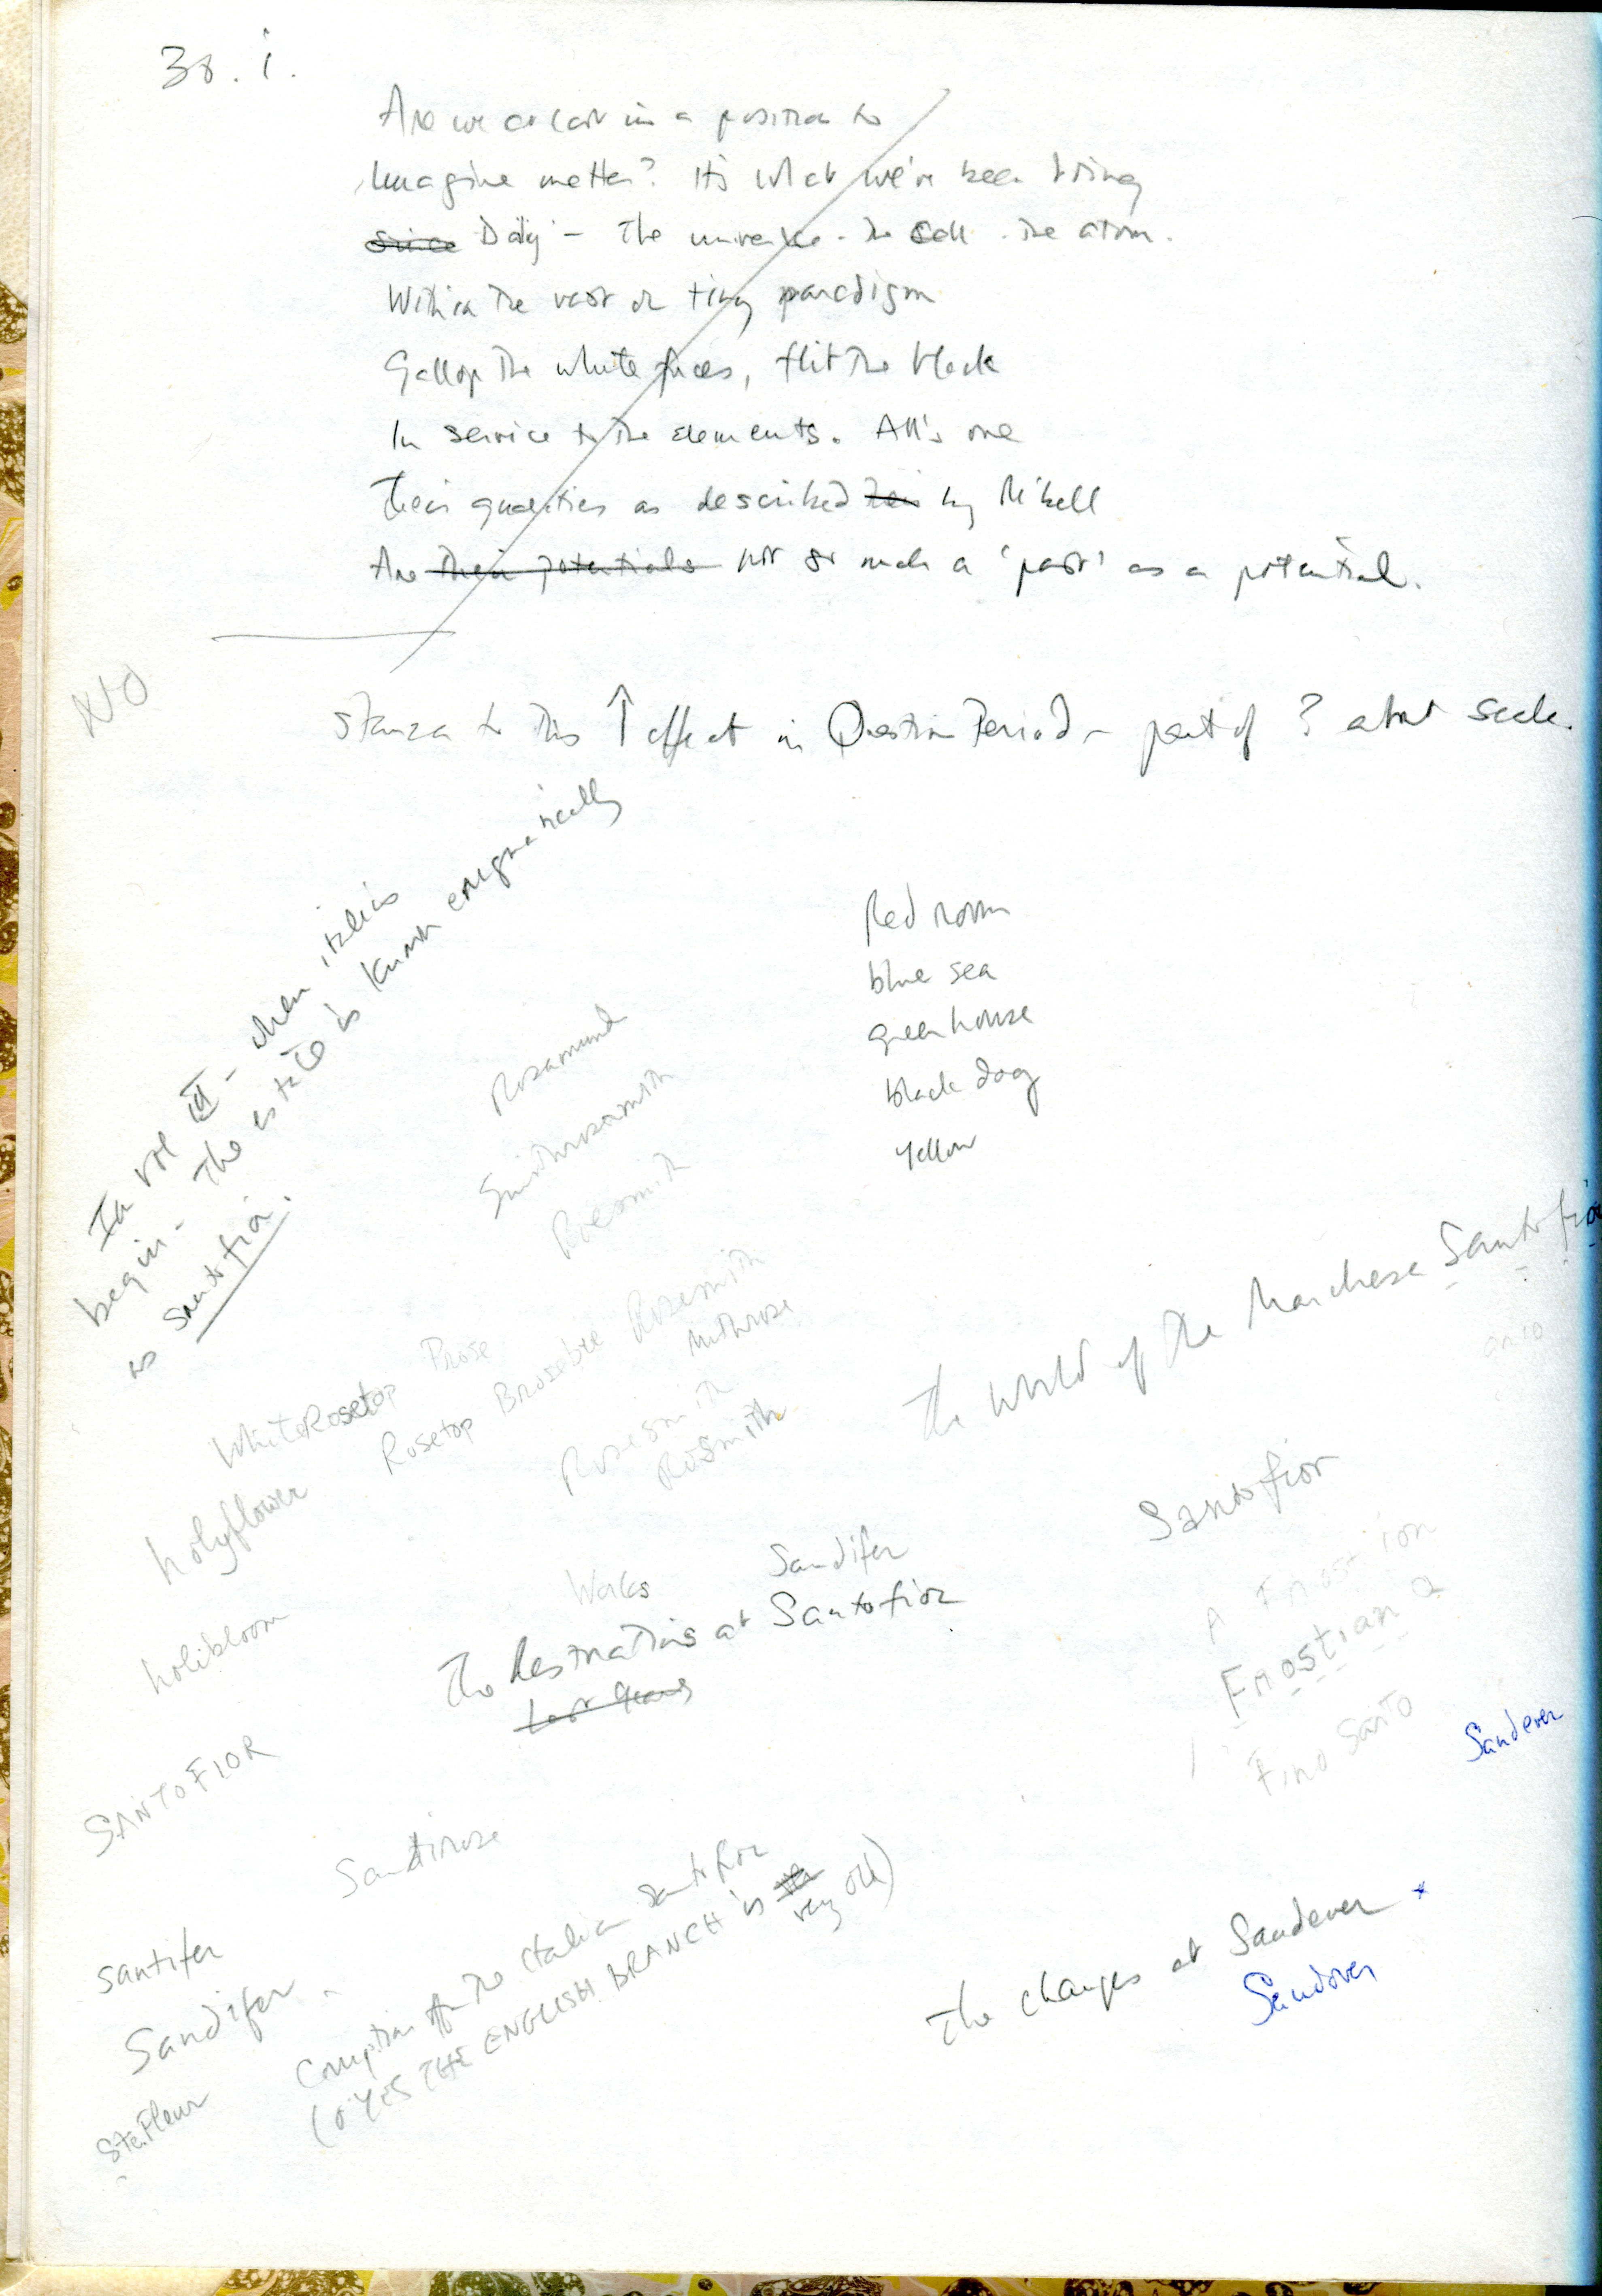 30.i.
Are we at last in a position to
Imagine matter? It's what we've been trying
since Daily – The universe. The cell. The atom.
Within the vast or tiny paradigm
Gallop the white faces, flit the black
In service to the elements. All's one
Their qualities as described by Mibell
Are their potentials not so much a 'past' as a potential.
NO
Stanza to this ↑ effect in Question Period – part of ? about scale.
In vol III – when italics
begin – The estate is known enigmatically
as santofior.
Red room
blue sea
green house
black dog
yellow
Rosamund
Smithrosamith
Rosmith
The World of the Marchese Santofior
Prose
WhiteRosetop
Rosetop Brosetre Rosemith
Mithrose
Rosesmith
Rosmith
holyflower
holibloom
Santofior
Works
Sandifer
The Restorations at Santofior
Last Years
A Frost ion
Frostian a
Fino Santo
Sandever
SANTOFIOR
Santirose
santifer
Sandifer
Ste.Fleur
Corruption of the Italian santofior
(O YES THE ENGLISH BRANCH is very old)
The changes at Sandever *
Sandover